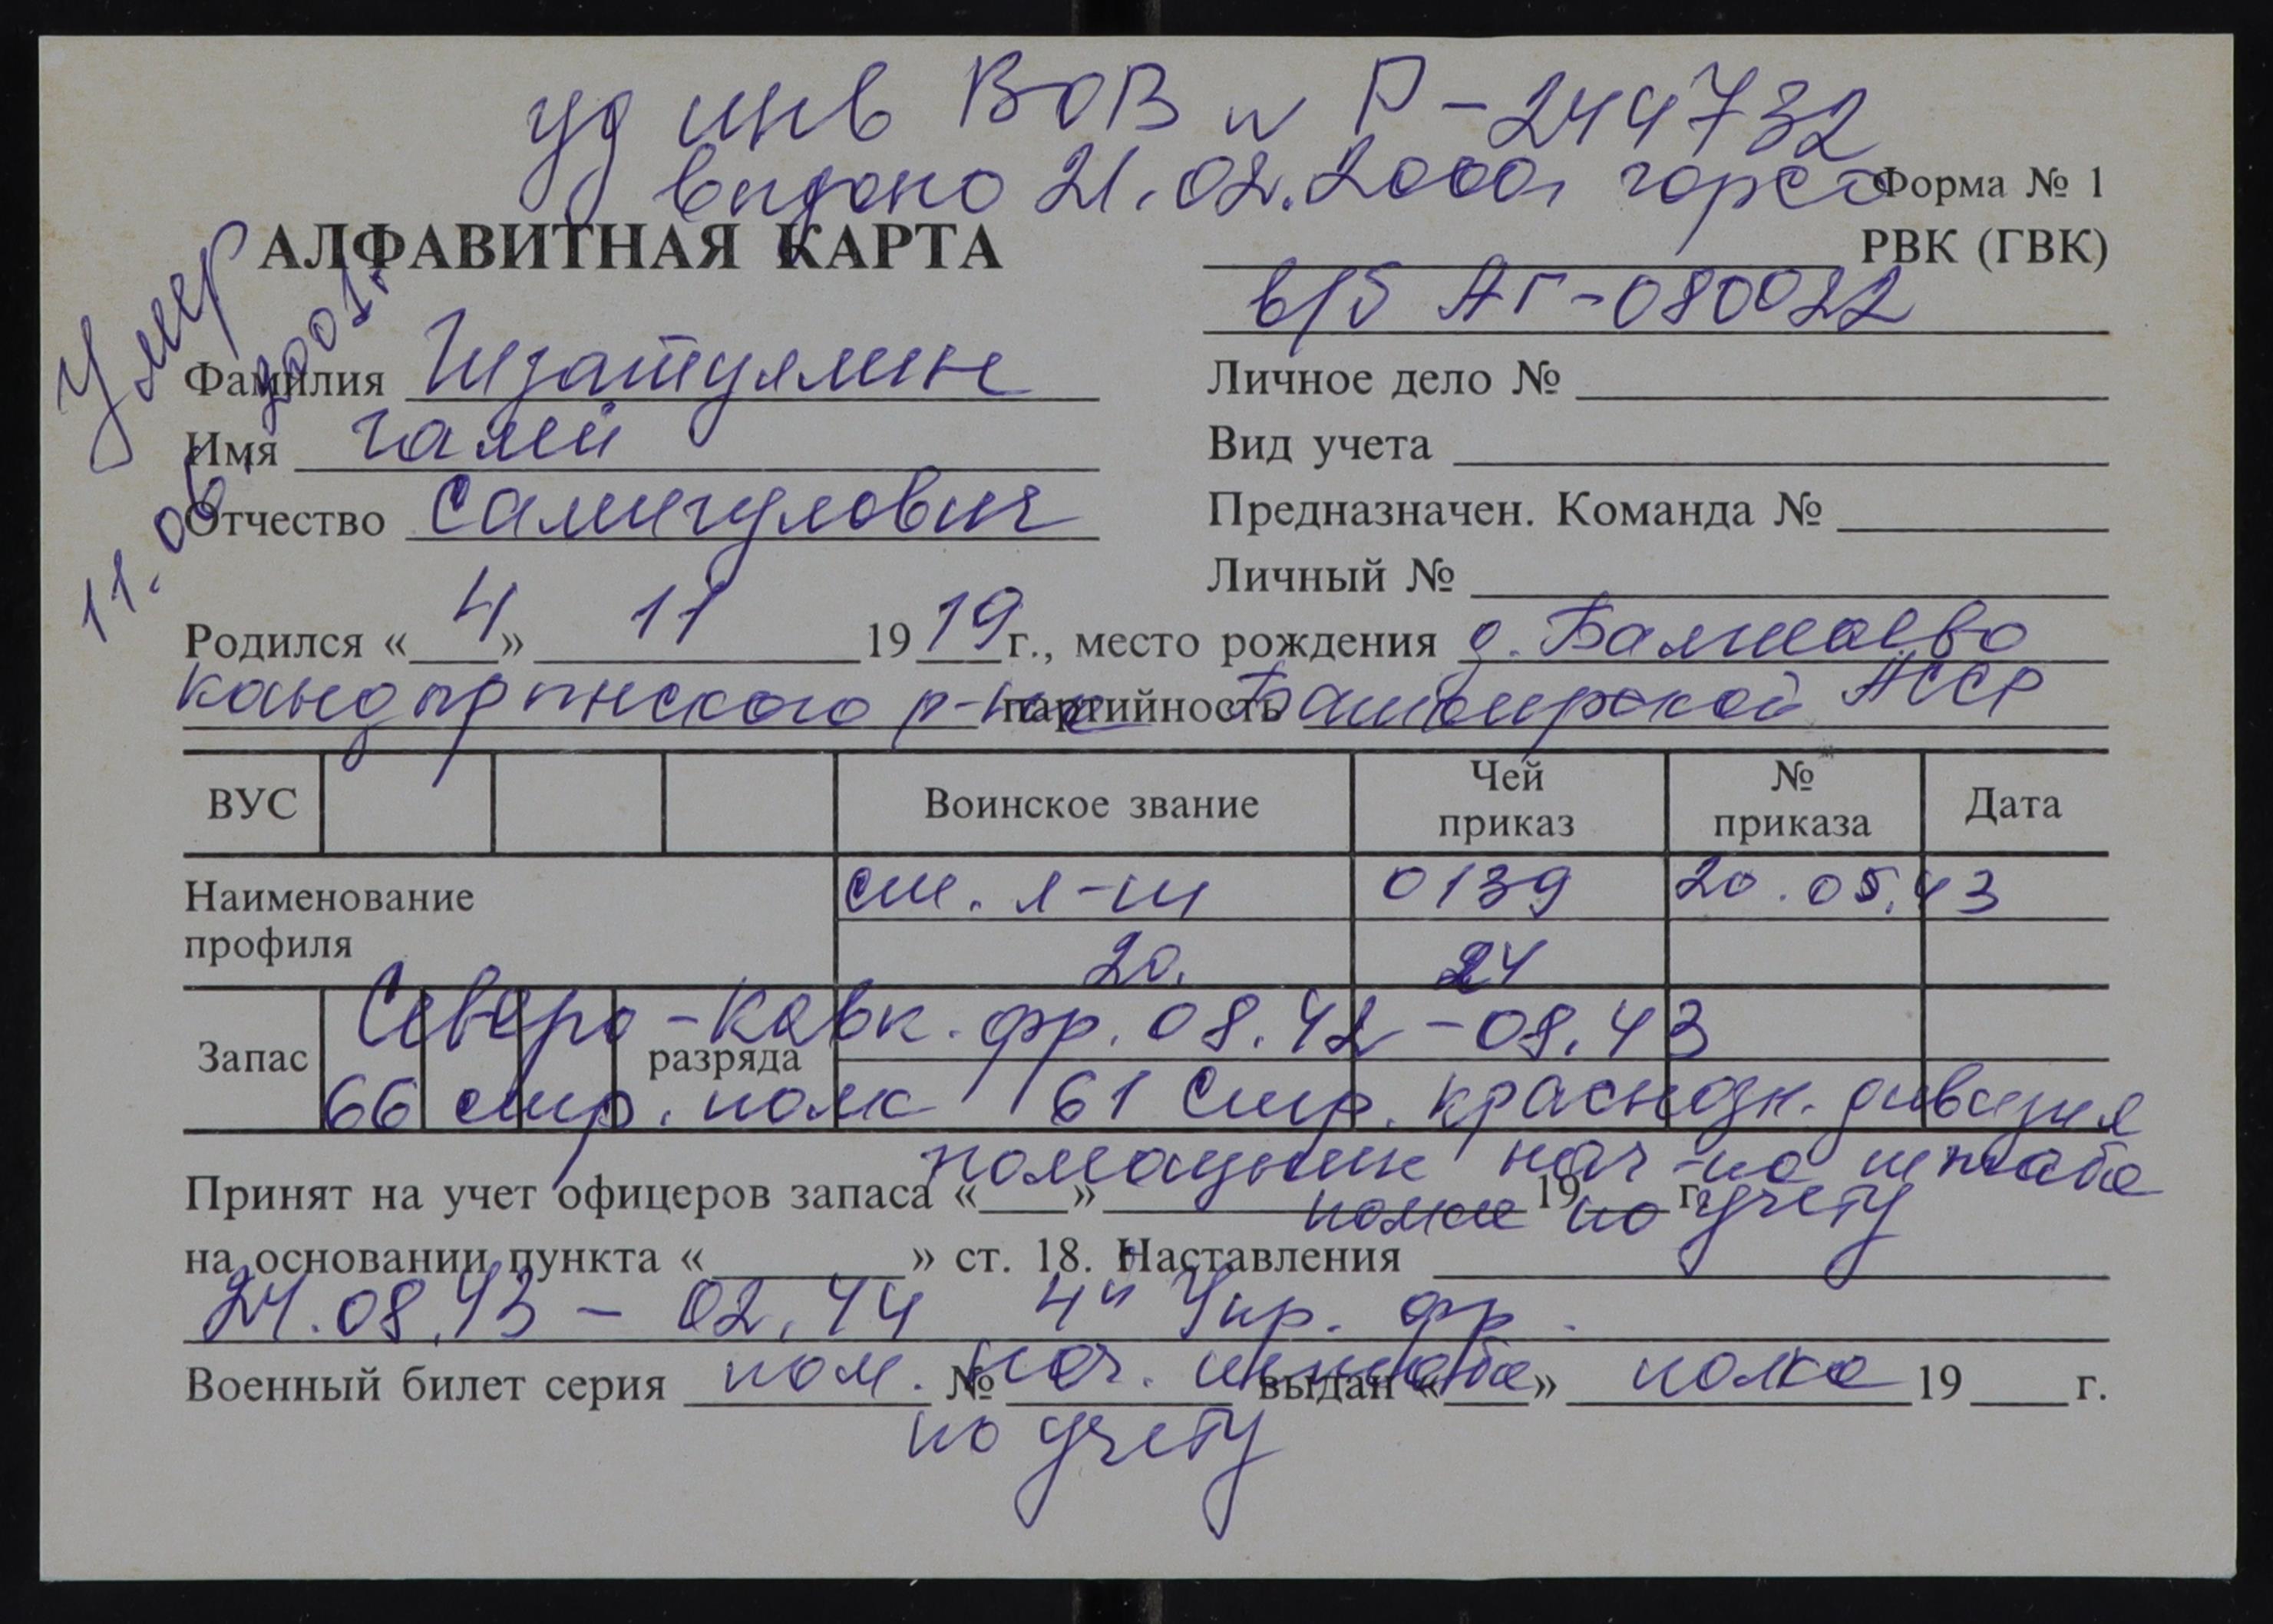 уд инв ВОВ № Р-244732
выдано 21.02.2000г горсо
Форма № 1
АЛФАВИТНАЯ КАРТА
РВК (ГВК)
в/б АГ-080022
Умер
11.06.2001г.
Фамилия Гизатуллин
Личное дело №
Имя Галей
Вид учета
Отчество Самигулович
Предназначен. Команда №
Личный №
Родился « 4 » 11 19 19 г., место рождения д.
Кандринского р-на партийность Башкирской АССР
ВУС Воинское звание Чей приказ № приказа Дата
Наименование профиля
ст. л-т 0139 20.05.43
20. 24
Запас разряда
Северо-Кавк. фр. 08.42 - 08.43
66 стр. полк 61 Стр. краснозн. дивизия
помощник нач-ка штаба
Принят на учет офицеров запаса « » 19 г.
полка по учету
на основании пункта « » ст. 18. Наставления
24.08.43 - 02.44 4й Укр. фр.
Военный билет серия № выдан « » 19 г.
пом. нач. штаба полка
по учету